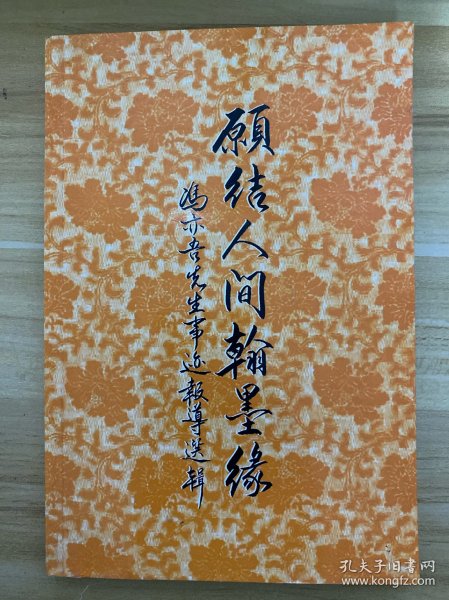 願结人间翰墨缘
冯亦吾先生事迹报导选辑
孔夫子旧书网
www.kongfz.com